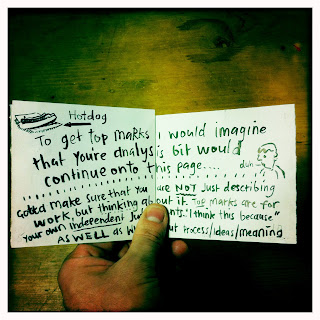 Hotdog
To get top marks I would imagine
that you're analysis bit would
continue onto this page....
duh
Gotta make sure that you are NOT Just describing
work, but thinking about it. Top marks are for
your own independent "I think this because"
AS WELL as process/ideas/meaning.